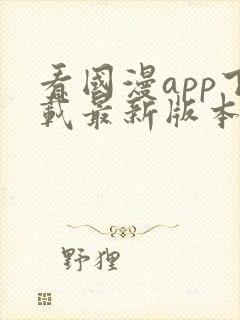 看國漫app下
載最新版本
野狸